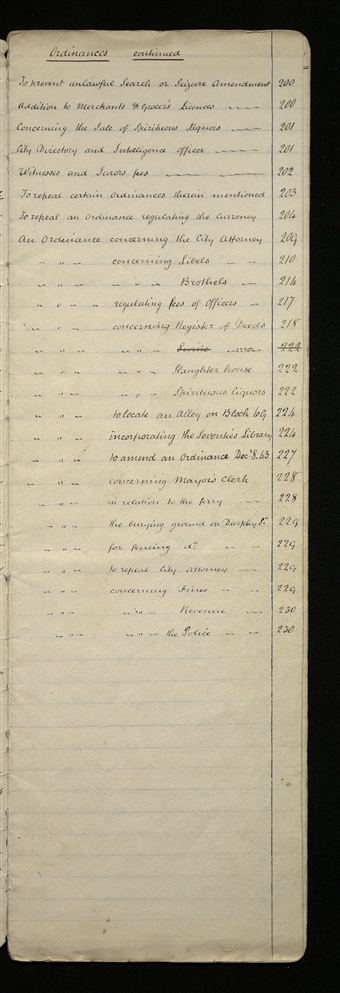 Ordinances continued
To prevent unlawful Search or Seizure Amendment 200
Addition to Merchants & Grocer's Licences 200
Concerning the Sale of Spirituous Liquors 201
City Directory and Intelligence officer 201
Witnesses and Jurors fees 202
To repeal certain Ordinances therein mentioned 203
To repeal an Ordinance regulating the Currency 204
An Ordinance concerning the City Attorney 209
" " " concerning Libels " " 210
" " " " " Brothels 214
" " " regulating fees of Officers " 217
" " " concerning Register of Deeds 218
" " " " " error 222
" " " " " Slaughter house 222
" " " " " Spirituous liquors 222
" " " to locate an Alley on Block 69 224
" " " incorporating the Seventies Library 224
" " " to amend an Ordinance Decr 8. 43 227
" " " concerning Mayor's Clerk 228
" " " in relation to the ferry 228
" " " the burying ground on Durphy St 229
" " " for fencing do 229
" " " to repeal City Attorney 229
" " " concerning Fines " " 229
" " " " " Revenue 230
" " " " " the Police " " 230